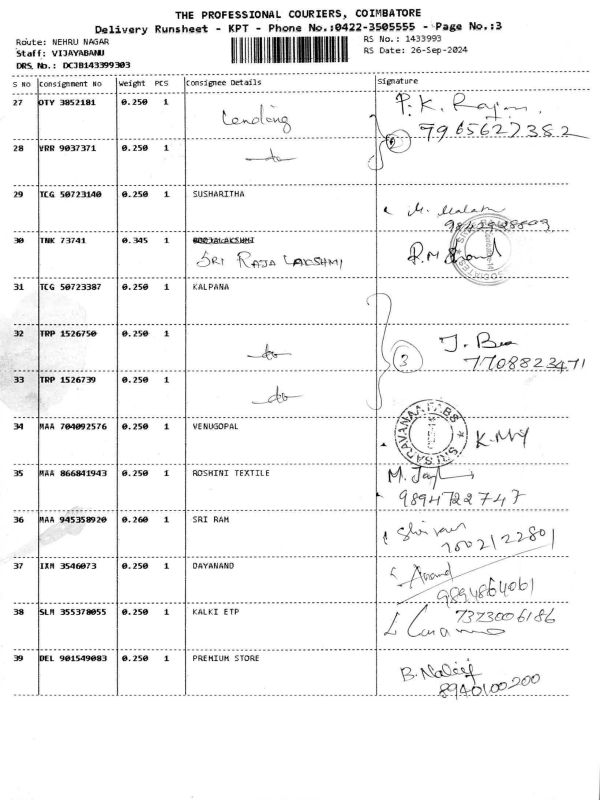 THE PROFESSIONAL COURIERS, COIMBATORE
Delivery Runsheet - KPT - Phone No.:0422-3505555 - Page No.:3
Route: NEHRU NAGAR RS No.: 1433993
Staff: VIJAYABANU RS Date: 26-Sep-2024
DRS. No.: DCJB143399303
S No Consignment No Weight PCS Consignee Details Signature
27 OTY 3852181 0.250 1 Lending P. K. Rajan.
7965627382
28 VRR 9037371 0.250 1 do 2
29 TCG 50723140 0.250 1 SUSHARITHA
30 TNK 73741 0.345 1
SRI RAJA LAKSHMI
31 TCG 50723387 0.250 1 KALPANA
32 TRP 1526750 0.250 1 do 3
7708823471
33 TRP 1526739 0.250 1 do
34 MAA 704092576 0.250 1 VENUGOPAL
35 MAA 866841943 0.250 1 ROSHINI TEXTILE
9894722747
36 MAA 945358920 0.260 1 SRI RAM
37 IXM 3546073 0.250 1 DAYANAND Anand
9894864061
38 SLM 355378055 0.250 1 KALKI ETP 7373006186
39 DEL 901549083 0.250 1 PREMIUM STORE
8940100200